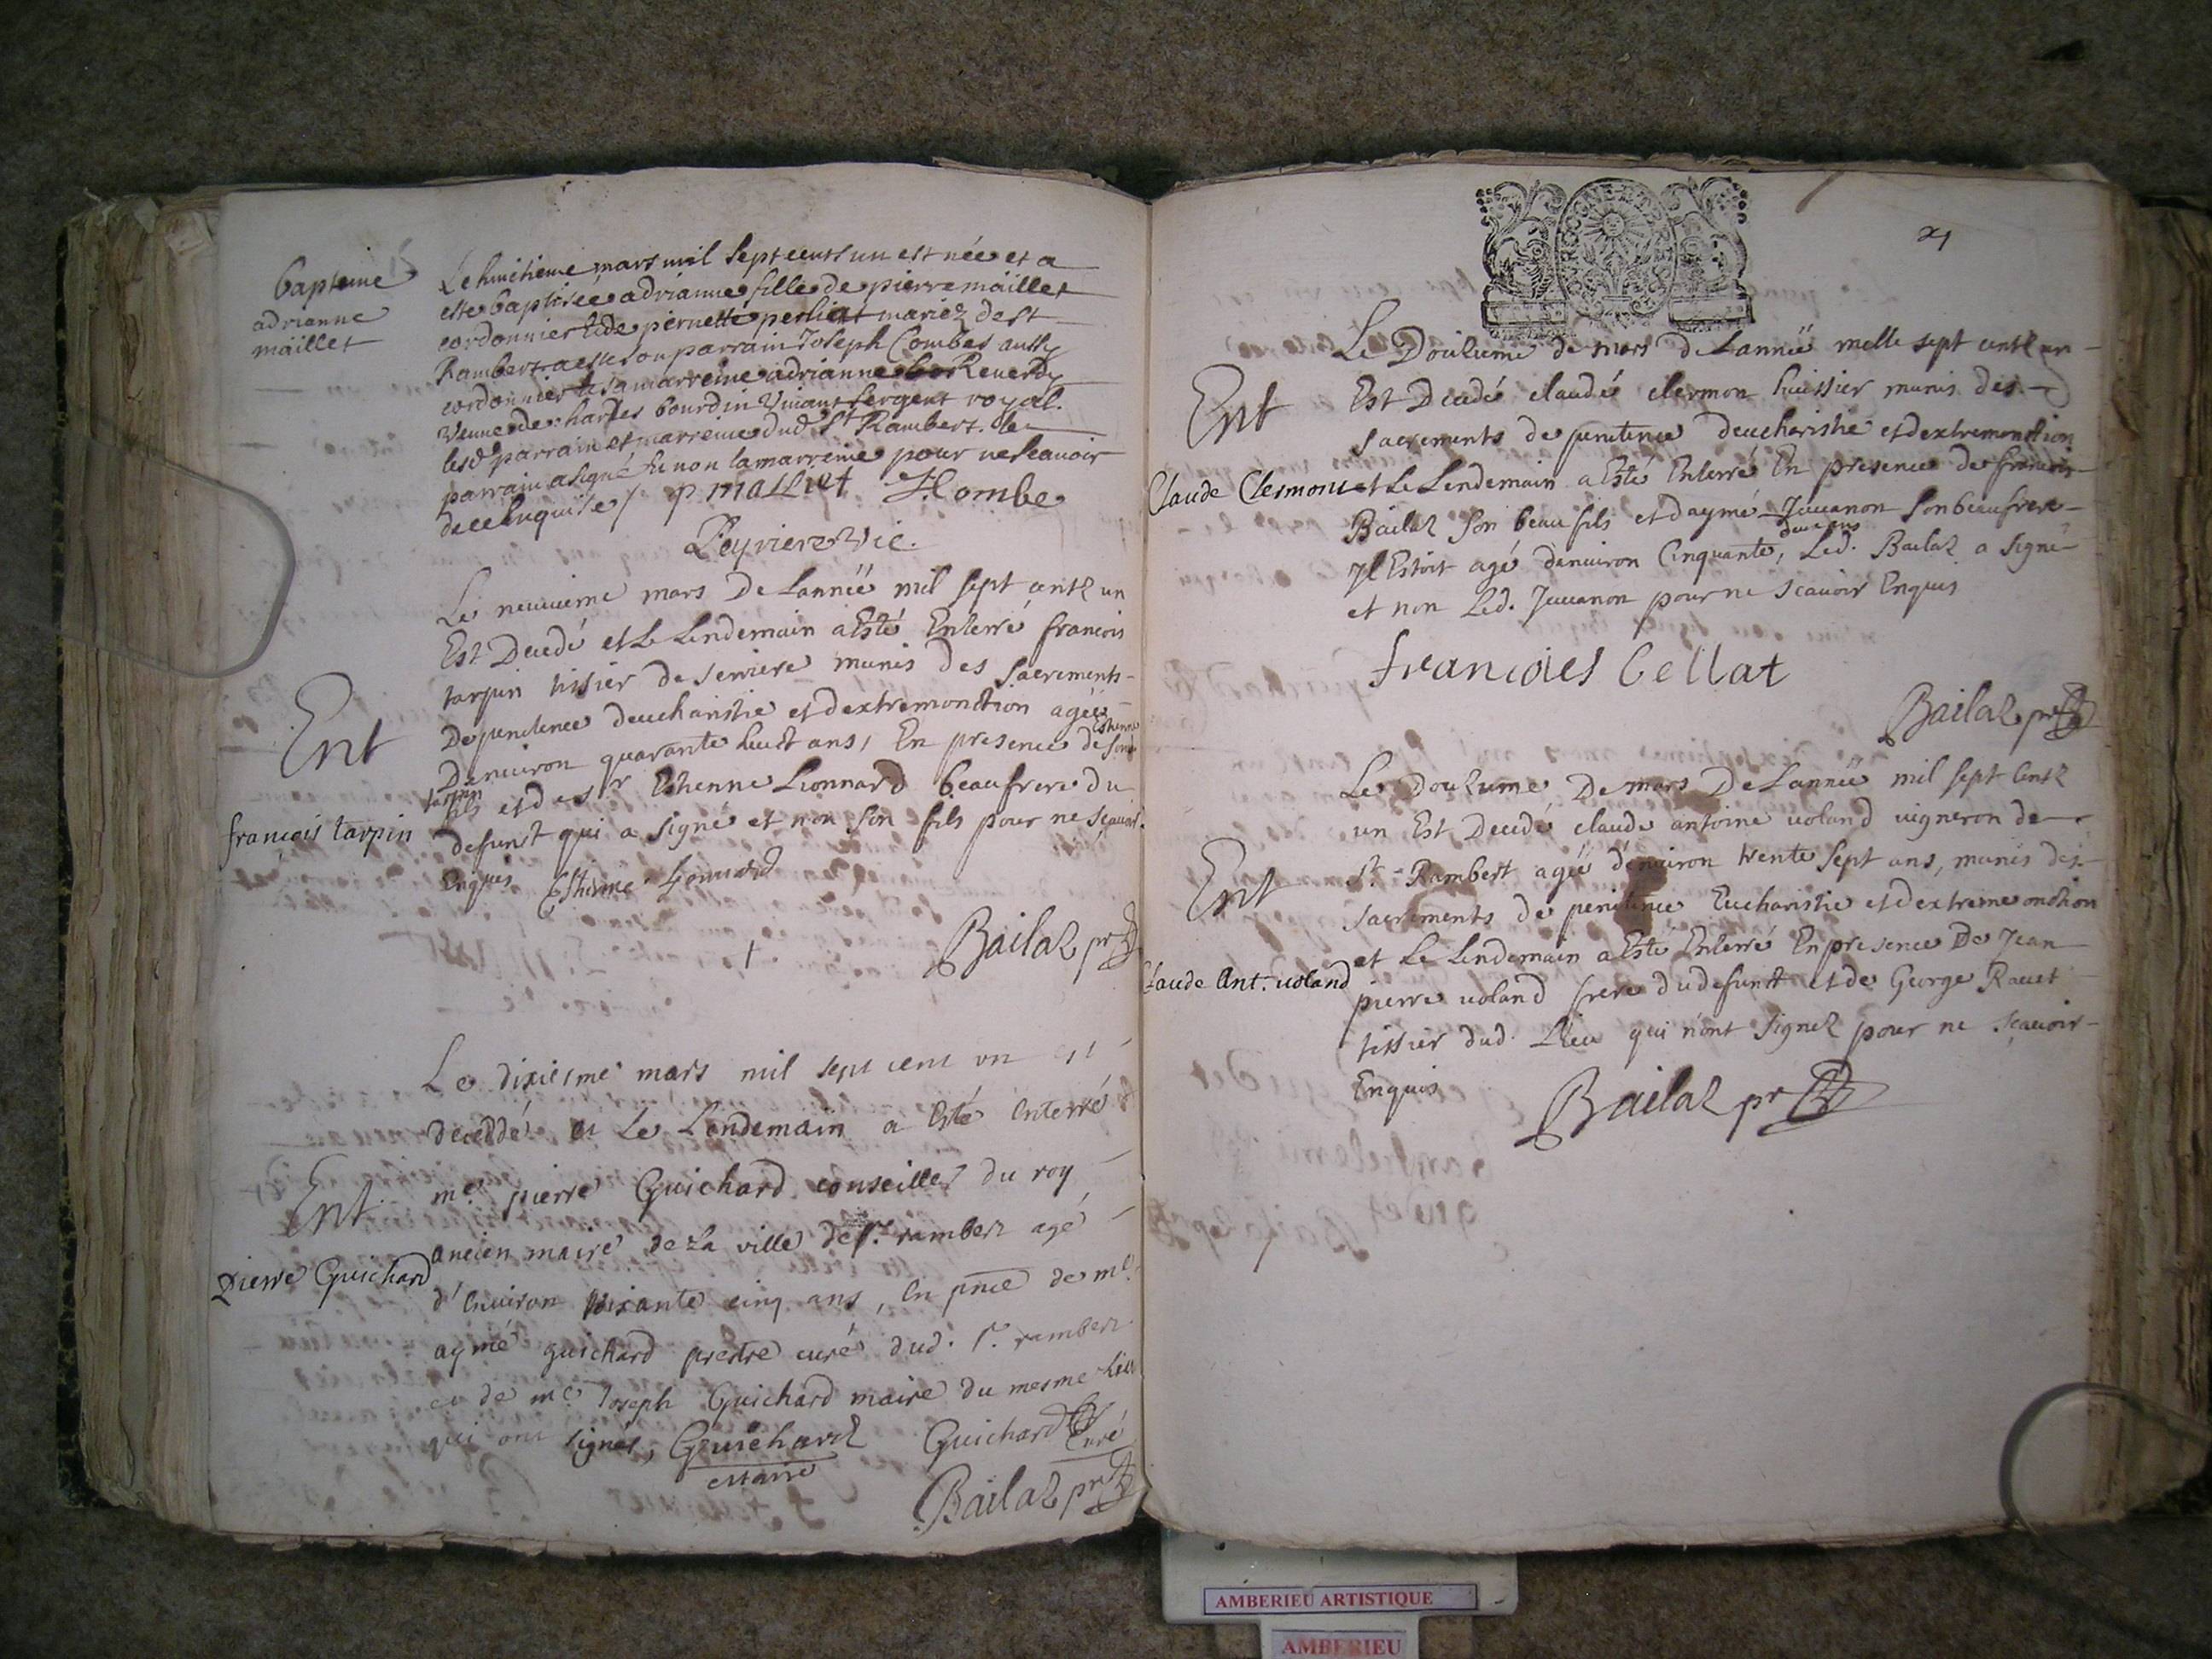 bapteme
adrianne
maillet
Le huictieme mars mil sept cents un est née et a
este baptisée adrianne fille de pierre maillet
cordonnier et de pernette perliat mariez de st
Rambert a este son parrain Joseph Combet aussy
cordonnier et sa marreine adrianne Reuerdy
veuve de charles bourdin vivant sergent royal.
lesd parrain et marreine dud St Rambert. le
parrain a signé et non la marreine pour ne scauoir
de ce enquise / p maLLiet J Combe
Peyriere vic.
Ent
françois tarpin
Le neuuieme mars De Lanneë mil sept centz un
Est Decedé et Le Lendemain a Esté Enterré francois
tarpin tissier de serriere munis des sacrements
De penitence deucharistie et dextremonction ageé
Denuiron quarante huict ans, En presence de Estienne son
tarpin
fils et de sr Estienne Lionnard beaufrere du
defunct qui a signé et non son fils pour ne sçauoir
Enquis Estienne Lonnard
Bailaz pr
Ent
Pierre Guichard
Le dixiesme mars mil sept cent un est
deceddé et Le Lendemain a Esté Enterré
me. pierre Guichard conseiller du roy
ancien maire de La ville de st. rambert agé
d'Enuiron soixante cinq ans, En pnce de me.
aymé guichard prestre curé dud. st. rambert
et de me Joseph Guichard maire du mesme Lieu
qui ont signés, Guichard Guichard
maire Curé
Bailaz pr
Ent
Claude Clermont
Le Douzieme de mars de Lanneë mille sept centz un
Est Decedé claude clermon huissier munis des
sacrements de penitence deucharistie et dextremonction
et Le Lendemain a Esté Enterré En presence de francois
Bailaz son beau fils et daymé Juuanon son beaufrere
Jl Estoit agé denuiron Cinquante deux ans, Led. Bailaz a signé
et non Led. Juuanon pour ne scauoir Enquis
francoies bellat
Bailaz pr
Ent
Claude Ant. uoland
Le Douzieme De mars De Lanneë mil sept Centz
un Est Decedé claude antoine uoland uigneron de
st. Rambert ageé denuiron trente sept ans, munis des
sacrements de penitence Eucharistie et dextreme onction
et Le Lendemain a Esté Enterré En presence De Jean
pierre uoland frere du defunct et de George Rauet
tissier dud. Lieu qui n'ont signez pour ne sçauoir
Enquis
Bailaz pr
AMBERIEU ARTISTIQUE
AMBERIEU